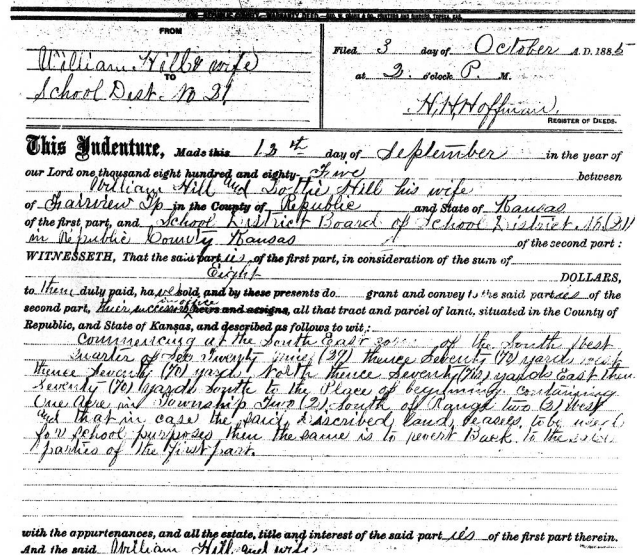 FROM
William Hill & wife
TO
School Dist. No 21
Filed 3 day of October A.D. 1885
at 2 o'clock P. M.
H. H. Hoffman,
REGISTER OF DEEDS.
This Indenture, Made this 12th day of September in the year of
our Lord one thousand eight hundred and eighty-Five between
William Hill and Hill his wife
of Fairview Tp in the County of Republic and State of Kansas
of the first part, and School District Board of School District No (21)
in Republic County Kansas of the second part:
WITNESSETH, That the said parties of the first part, in consideration of the sum of
Eight DOLLARS,
to them duly paid, have sold, and by these presents do grant and convey to the said parties of the
second part, their in office heirs and assigns, all that tract and parcel of land, situated in the County of
Republic, and State of Kansas, and described as follows to wit:
Commencing at the South East of the South West
Quarter of Sec Twenty thence Seventy (70) yards west
thence Seventy (70) yards North thence Seventy (70) yards East then
Seventy (70) yards South to the Place of beginning containing
One Acre in Township Two (2) South of Range two (2) West
and that in case the said described land ceases to be used
for school purposes then the same is to revert Back to the
parties of the first part.
with the appurtenances, and all the estate, title and interest of the said parties of the first part therein.
And the said William Hill and wife